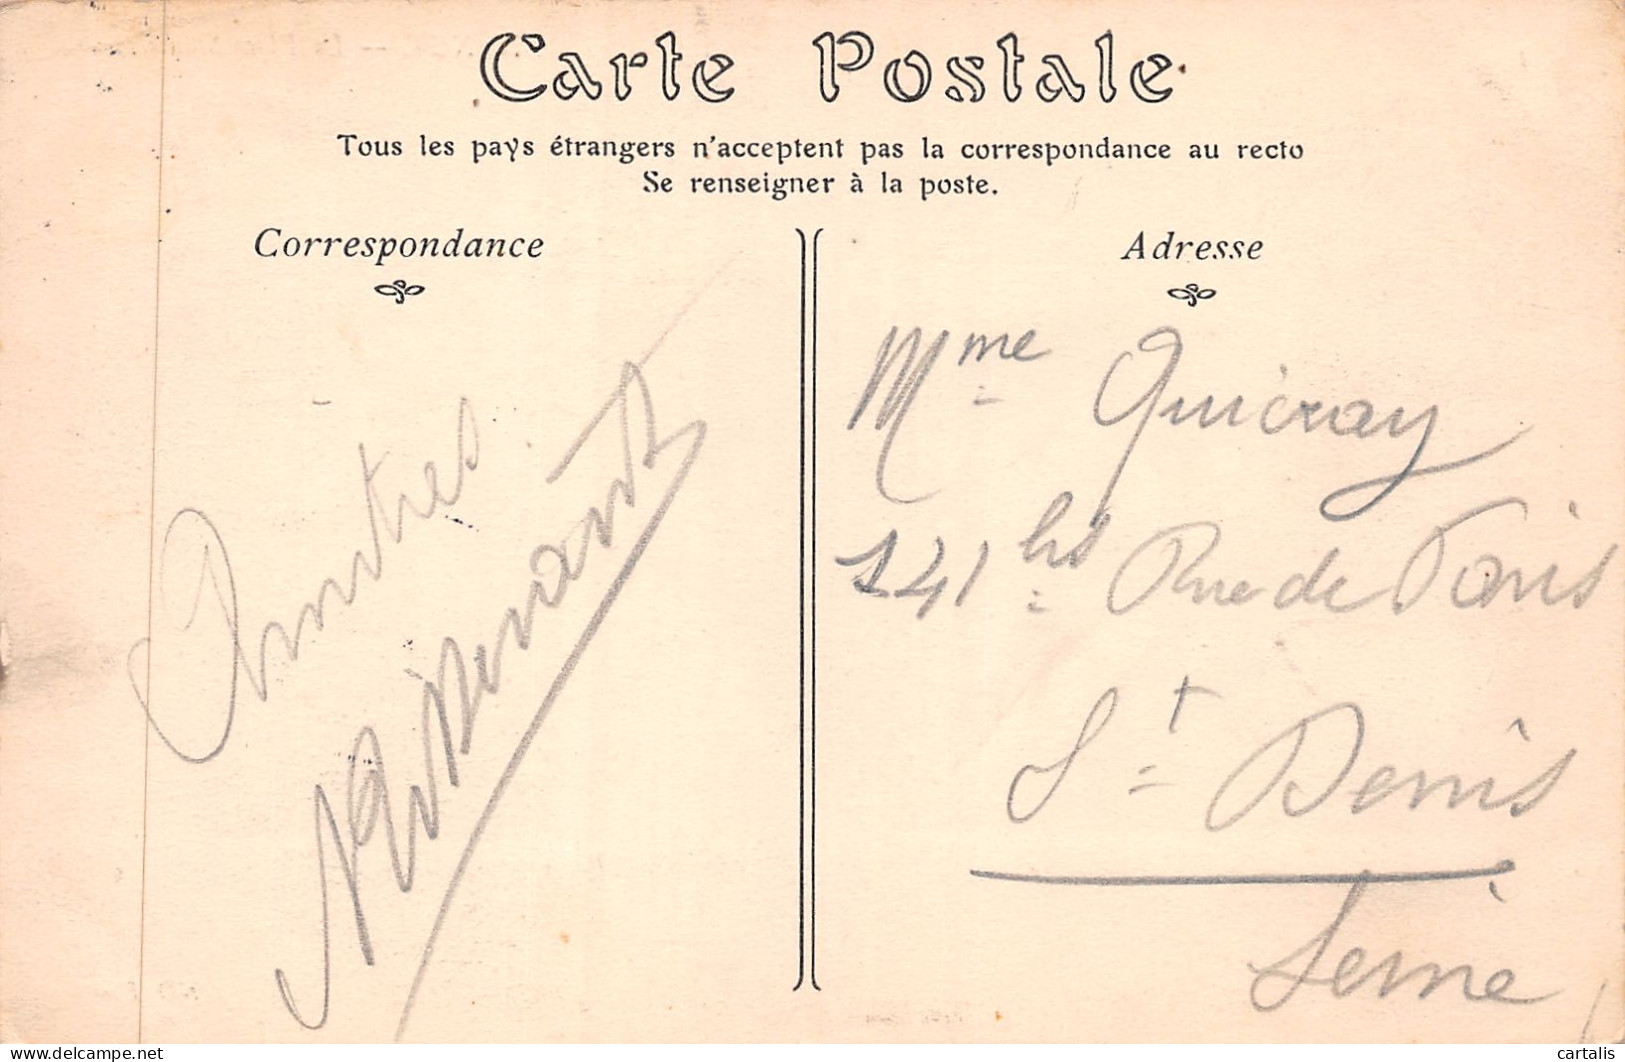 Carte Postale
Tous les pays étrangers n'acceptent pas la correspondance au recto
Se renseigner à la poste.
Correspondance
Adresse
Amitiés
Mme Quicray
141 bis Rue de Paris
St Denis
Seine
www.delcampe.net
cartalis